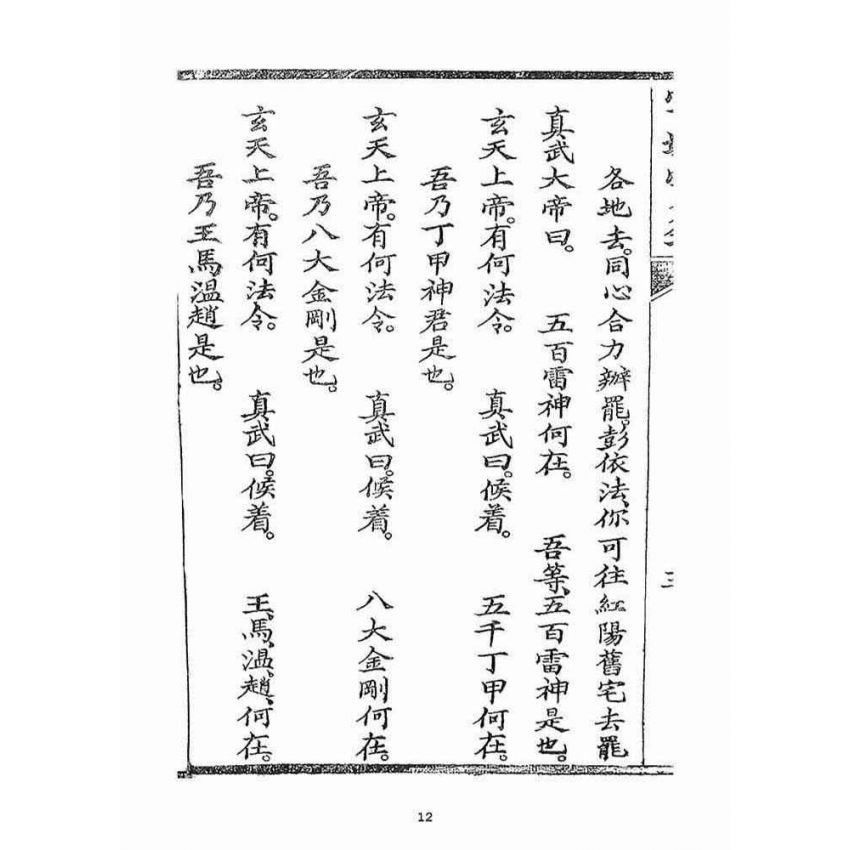 各地去。同心合力辦罷。彭依法、你可往紅陽舊宅去罷
真武大帝曰。　五百雷神何在。　吾等、五百雷神是也。
玄天上帝。有何法令。　真武曰。候着。　五千丁甲何在。
吾乃丁甲神君是也。
玄天上帝。有何法令。　真武曰。候着。　八大金剛何在。
吾乃八大金剛是也。
玄天上帝。有何法令。　真武曰。候着。　王、馬、溫、趙、何在。
吾乃王馬溫趙是也。
三
12